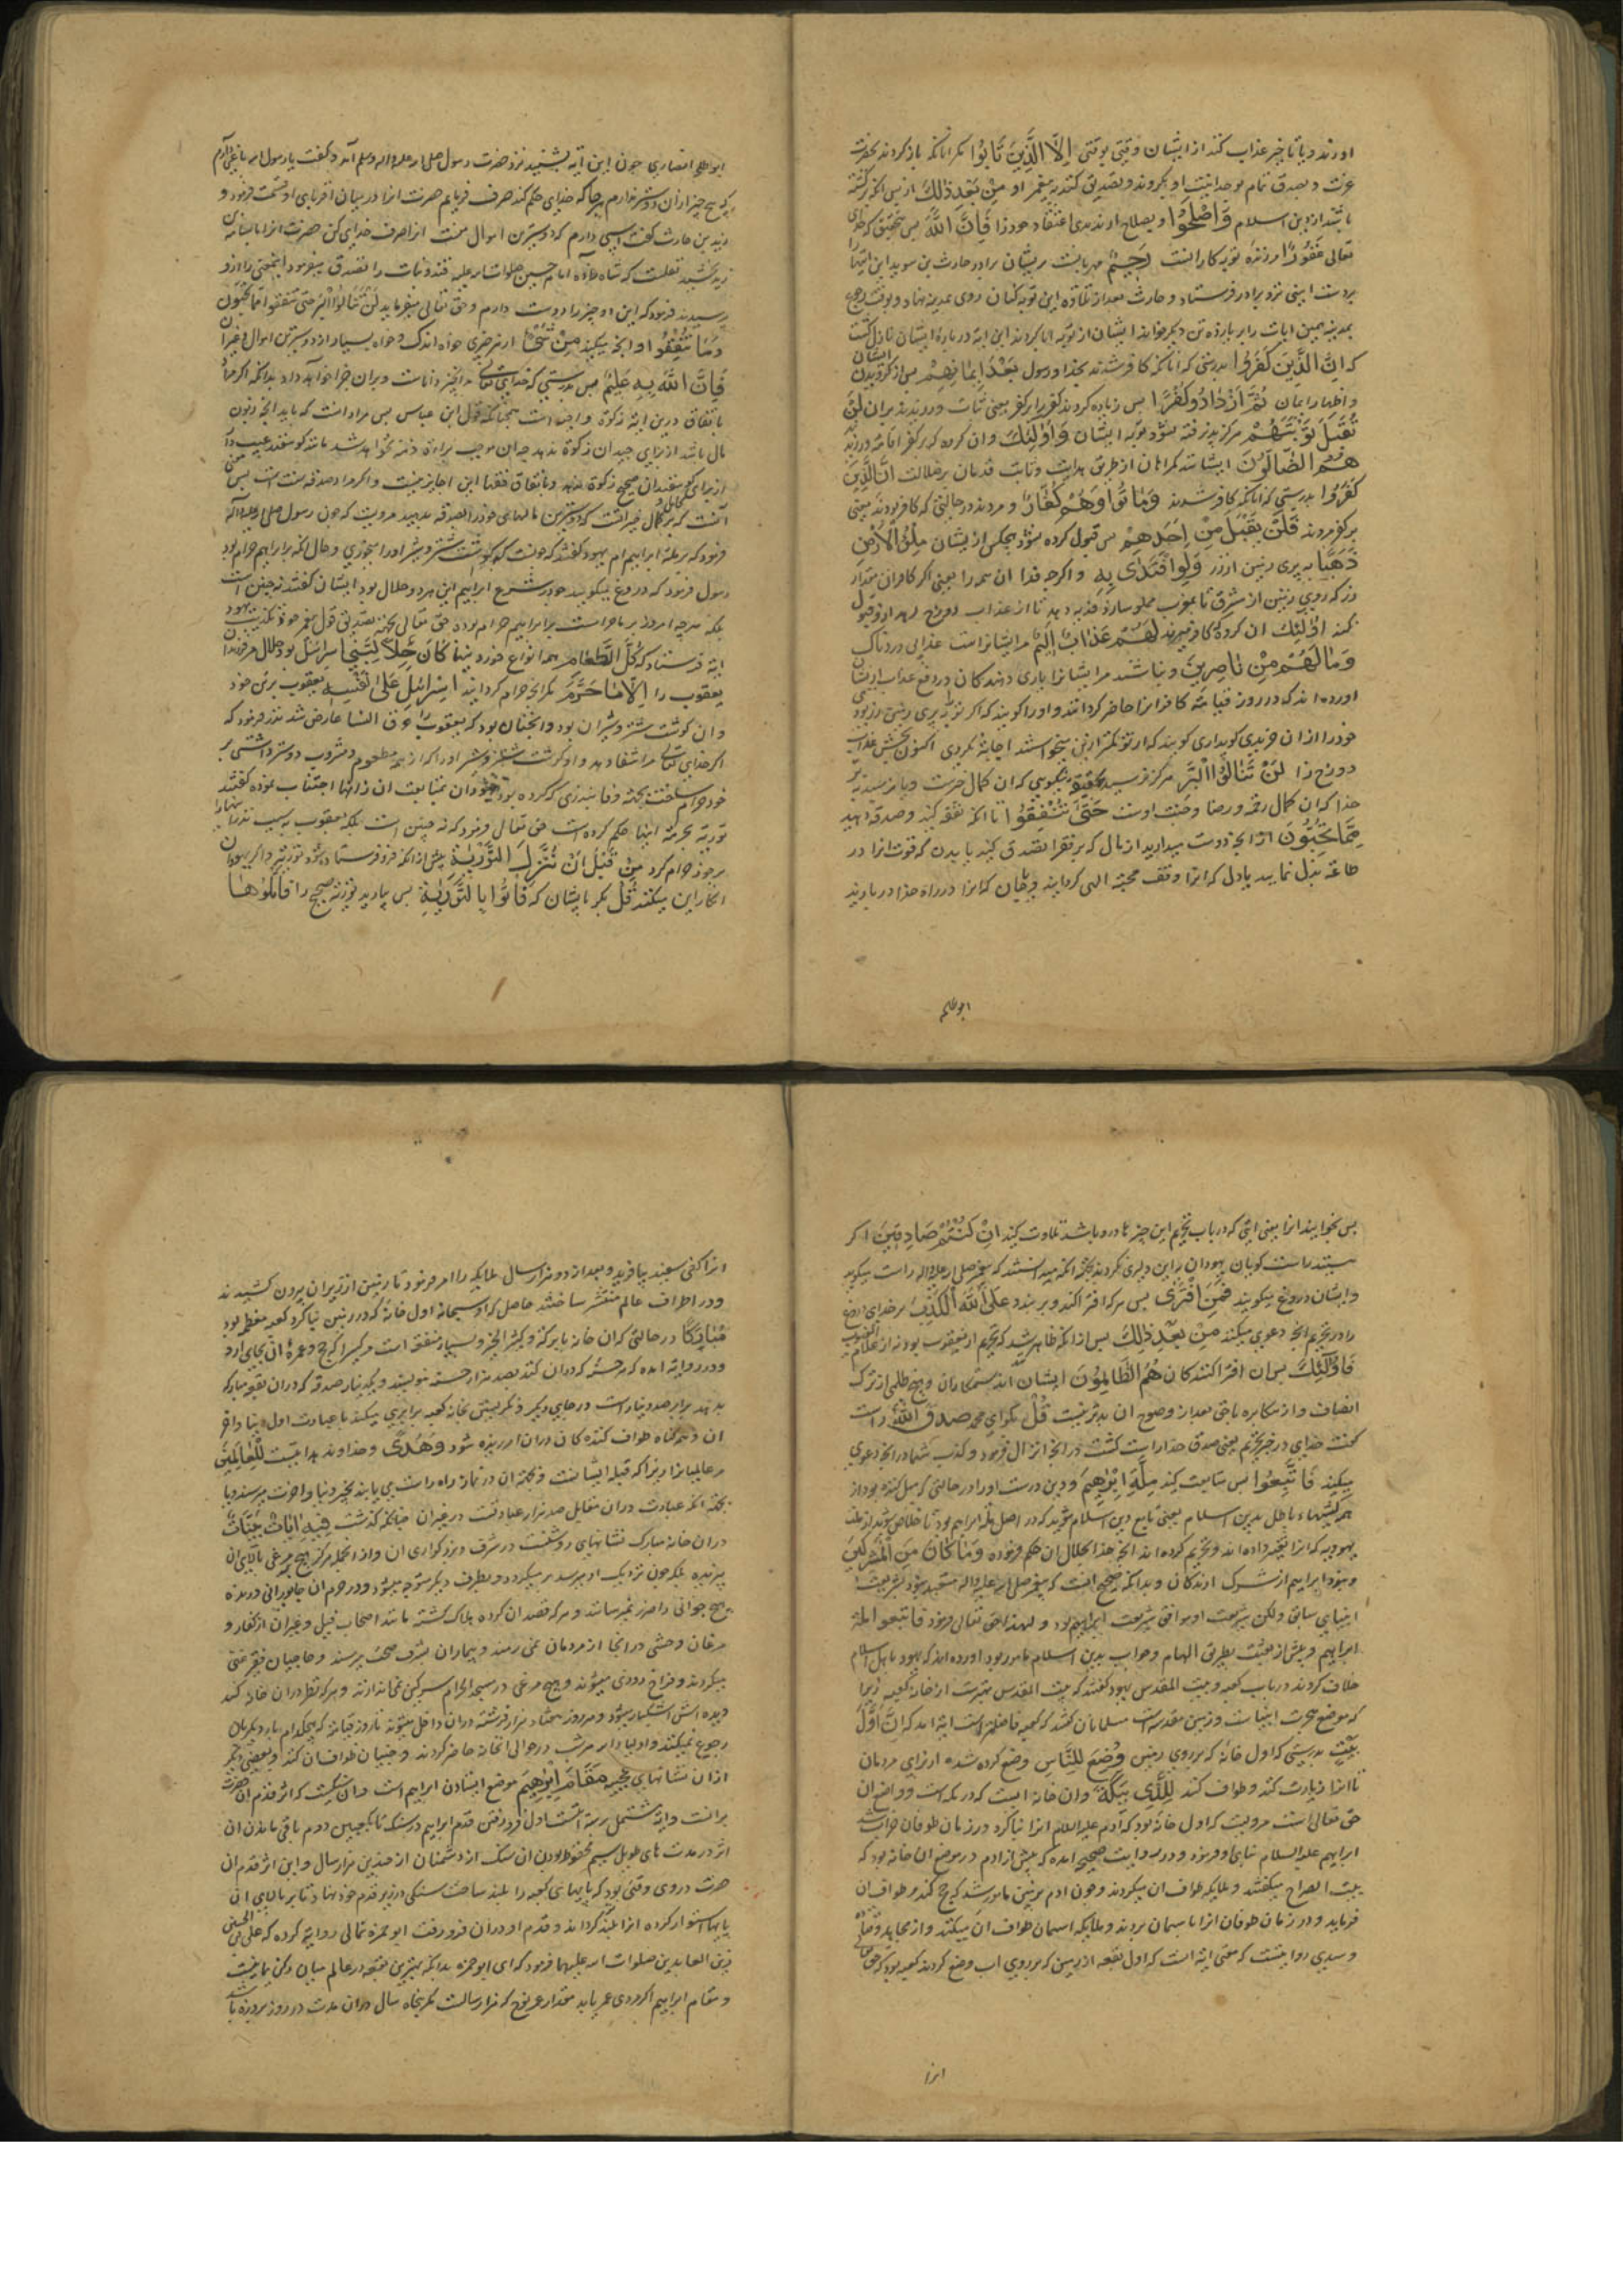 اورند و یا تاخیر عذاب کنند از ایشان وقتی بوقتی اِلَّا الَّذِینَ تَابُوا مکر انانکه باز کردند بحضرت
عزت و بصدق تمام بوحدانیت او بکروند و تصدیق کنند به پیغمبر او مِنْ بَعْدِ ذٰلِكَ از پس انکه برکشته
باشند از دین اسلام وَاَصْلَحُوا و بصلاح اورندی اعتقاد خود را فَاِنَّ اللّٰهَ پس بتحقیق که خدای
تعالی غَفُورٌ امرزنده توبه کارانست رَحِیمٌ مهربانست بریشان برادر حارث بن سوید این ایتها را
بدست ایشی نزد برادر فرستاد و حارث بعد از تلاوه این توبه کنان روی بمدینه نهاد و بوقت رجوع
بمدینه همین ایات را بر یازده تن دیکر خواند ایشان از توبه ابا کردند این ایه در باره ایشان نازل کشت
که اِنَّ الَّذِینَ کَفَرُوا بدرستی که انانکه کافر شدند بخدا و رسول بَعْدَ اِیمَانِهِمْ پس از کرویدن ایشان
و اظهار ایمان ثُمَّ ازْدَادُوا کُفْرًا پس زیاده کردند کفر برابر کفر یعنی ثبات ورزیدند بران لَنْ
تُقْبَلَ تَوْبَتُهُمْ هرکز پذیرفته نشود توبه ایشان وَاُولٰئِكَ وان کروه که بر کفر اقامه ورزند
هُمُ الضَّالُّونَ ایشانند کمراهان از طریق هدایت و ثابت قدمان بر ضلالت اِنَّ الَّذِینَ
کَفَرُوا بدرستی که انانکه کافر شدند وَمَاتُوا وَهُمْ کُفَّارٌ و مردند در حالتی که کافر بودند یعنی
بر کفر مردند فَلَنْ یُقْبَلَ مِنْ اَحَدِهِمْ پس قبول کرده نشود از هیچکس ازیشان مِلْؤُ الْاَرْضِ
ذَهَبًا به پری زمین از زر وَلَوِ افْتَدٰی بِهِ و اکرچه فدا ان همه را یعنی اکر کافران مقدار
زر که روی زمین از مشرق تا بمغرب مملو سازد فدیه دهد تا از عذاب دوزخ رهد از و قبول
نکنند اُولٰئِكَ ان کروه که کافر میرند لَهُمْ عَذَابٌ اَلِیمٌ مرایشانراست عذابی دردناک
وَمَا لَهُمْ مِنْ نَاصِرِینَ و نباشند مرایشانرا یاری دهندکان در دفع عذاب ازیشان
اورده اند که در روز قیامه کافرانرا حاضر کردانند و او را کویند که اکر ترا به پری زمین زر بود
خود را ازان خریدی کوید اری کویند که از تو کمتر ازین میخواستند اجابه نکردی اکنون بچش عذاب
دوزخ را لَنْ تَنَالُوا الْبِرَّ هرکز نرسید بحقیقه نیکویی که ان کمال خیرست و یا نرسید به بر
خدا که ان کمال رحمه و رضا و جنت اوست حَتّٰی تُنْفِقُوا تا انکه نفقه کنید و صدقه دهید
مِمَّا تُحِبُّونَ از انچه دوست میدارید از مال که بر فقرا تصدق کنید یا بدن که قوت انرا در
طاعه بذل نمایید یا دل که انرا وقف محبه الهی کردانید و یا جان که انرا در راه خدا دربازید
ابوطلحه
ابوطلحه انصاری چون این ایه بشنید نزد حضرت رسول صلی الله علیه واله وسلم امد و کفت یا رسول الله باغی دارم
که هیچ چیز ازان دوستر ندارم هرجا که خدای حکم کند صرف فرمایم حضرت انرا در میان اقربای او قسمت فرمود و
زید بن حارث کفت اسبی دارم که دوسترین اموال منست انرا صرف خدای کن حضرت انرا باسامه بن
زید بخشید نقلست که شاه امام حسین صلوات الله علیه قند و نبات را تصدق میفرمود اینمعنی را ازو
پرسیدند فرمود که این دو چیز را دوست دارم و حق تعالی میفرماید لَنْ تَنَالُوا الْبِرَّ حَتّٰی تُنْفِقُوا مِمَّا تُحِبُّونَ
وَمَا تُنْفِقُوا و انچه میکنید مِنْ شَیْءٍ از هر چیزی خواه اندک و خواه بسیار از دوسترین اموال و غیر ان
فَاِنَّ اللّٰهَ بِهِ عَلِیمٌ پس بدرستی که خدای تعالی بدانچیز داناست و بران جزا خواهد داد بدانکه اکر مراد
بانفاق درین ایه زکوة واجبه است همچنانکه قول ابن عباس پس مراد انست که باید انچه زبون
مال باشد از برای جیدان زکوة ندهد
فرمود که بر مله ابراهیم ام یهود کفتند که چونست که کوشت شتر و شیر او را میخوری و حال انکه بر ابراهیم حرام بود
رسول فرمود که دروغ میکویید در شرع ابراهیم این هر دو حلال بود ایشان کفتند نه چنین است
بلکه هرچه امروز بر ما حرامست بر ابراهیم حرام بود حق تعالی بجهه تصدیق قول پیغمبر خود و تکذیب یهود
ایه فرستاد که کُلُّ الطَّعَامِ همه انواع خوردنیها کَانَ حِلًّا لِبَنِی اِسْرَائِیلَ بود حلال مر فرزندان
یعقوب را اِلَّا مَا حَرَّمَ مکر انچه حرام کردانید اِسْرَائِیلُ عَلٰی نَفْسِهِ یعقوب بر نفس خود
و ان کوشت شتر و شیر ان بود و انچنان بود که یعقوب را عرق النسا عارض شد نذر فرمود که
اکر خدای تعالی مرا شفا دهد و او کوشت شتر و شیر او را که از همه مطعوم و مشروب دوستر داشتی بر
خود حرام ساخت بجهه وفا بنذری که کرده بود یهودان بمتابعت ان ازانها اجتناب نموده کفتند
توریه بحرمه اینها حکم کرده است حق تعالی فرمود که نه چنین است بلکه یعقوب به سبب نذر اینها را
بر خود حرام کرد مِنْ قَبْلِ اَنْ تُنَزَّلَ التَّوْرٰیةُ پیش از انکه فرو فرستاده شود توریه و اکر یهودان
انکار این میکنند قُلْ بکو بایشان که فَاْتُوا بِالتَّوْرٰیةِ پس بیارید توریه صحیح را فَاتْلُوهَا
پس بخوانید انرا یعنی ایتی که در باب تحریم این چیزها درو باشد تلاوت کنید اِنْ کُنْتُمْ صَادِقِینَ اکر
هستید راست کویان یهودان براین دلیری نکردند بجهه انکه میدانستند که پیغمبر صلی الله علیه واله راست میکوید
و ایشان دروغ میکویند فَمَنِ افْتَرٰی پس هرکه افترا کند و بربندد عَلَی اللّٰهِ الْکَذِبَ بر خدای دروغ
را در تحریم انچه دعوی میکند مِنْ بَعْدِ ذٰلِكَ پس از انکه ظاهر شد که تحریم از یعقوب بوده نه از علام الغیوب
فَاُولٰئِكَ پس ان افترا کنندکان هُمُ الظَّالِمُونَ ایشان اند ستمکاران و هیچ ظلمی از ترک
انصاف و از مکابره با حق بعد از وضوح ان بدتر نیست قُلْ بکو ای محمد صَدَقَ اللّٰهُ راست
کفت خدای در خبر تحریم یعنی صدق خدا راست کشت در انچه انزال فرمود و کذب شما در انچه دعوی
میکنید فَاتَّبِعُوا پس متابعت کنید مِلَّةَ اِبْرٰهِیمَ دین درست او را در حالتی که میل کننده بود از
همه کیشهاء باطل بدین اسلام یعنی تابع دین اسلام شوید که در اصل مله ابراهیم بود تا خلاص شوید از مله
یهودیه که انرا تغییر داده اند و تحریم کرده اند انچه خدا بحلال ان حکم فرموده وَمَا کَانَ مِنَ الْمُشْرِکِینَ
و نبود ابراهیم از شرک ارندکان و بدانکه صحیح انست که پیغمبر صلی الله علیه واله متعبد نبود بشریعت
انبیای سابق ولکن شریعت او موافق شریعت ابراهیم بود و لهذا حق تعالی فرمود فاتبعوا مله
ابراهیم و پیش از بعثت بطریق الهام و صواب بدین اسلام مامور بود اورده اند که یهود با اهل اسلام
خلاف کردند در باب کعبه و بیت المقدس یهود کفتند که بیت المقدس بهترست از خانه کعبه زیرا
که موضع هجرت انبیاست و زمین مقدسه است مسلمانان کفتند که کعبه فاضلتر است ایه امد که اِنَّ اَوَّلَ
بَیْتٍ بدرستی که اول خانه که بر روی زمین وُضِعَ لِلنَّاسِ وضع کرده شده از برای مردمان
تا انرا زیارت کنند و طواف کنند لَلَّذِی بِبَکَّةَ وان خانه ایست که در مکه است و واضع ان
حق تعالی است مرویست که اول خانه بود که ادم علیه السلام انرا بنا کرد و در زمان طوفان خراب شد
ابراهیم علیه السلام بنای او فرمود و در روایت صحیح امده که پیش از ادم در موضع ان خانه بود که
بیت الضراح میکفتند و ملایکه طواف ان میکردند و چون ادم بزمین مامور شد که حج کند و طواف ان
فرماید و در زمان طوفان انرا باسمان بردند و ملایکه اسمان طواف ان میکنند و از مجاهد و قتاده
و سدی روایتست که معنی ایه انست که اول بقعه از زمین که بر روی اب وضع کردند کعبه بود که حق تعالی
انرا
انرا کفی سفید بیافرید و بعد از دو هزار سال ملایکه را امر فرمود تا زمین از زیر ان بیرون کشیدند
و در اطراف عالم منتشر ساختند حاصل که او سبحانه اول خانه که در زمین بنا کرد کعبه معظمه بود
مُبَارَکًا در حالتی که ان خانه با برکه و کثیر الخیر و بسیار منفعه است مر کسیرا که حج و عمره ان بجای ارد
و در روایه امده که هر حسنه که دران کنند بصد هزار حسنه نویسند و یکدینار صدقه که دران بقعه مبارکه
بدهند برابر صد دینار است در جای دیکر
ان و هم کناه طواف کننده کان دران امرزیده شود وَهُدًی و خداوند هدایت است لِلْعَالَمِینَ
مر عالمیانرا زیرا که قبله ایشانست و بجهه ان در نماز راه راست می یابند بخیر دنیا و اخرت میرسند و یا
بجهه انکه عبادت دران مقابل صد هزار عبادتست در غیران چنانکه کذشت فِیهِ اٰیَاتٌ بَیِّنَاتٌ
دران خانه مبارک نشانهای روشنست در شرف و بزرکواری ان و از انجمله هرکز هیچ مرغی بالای ان
نپریده بلکه چون نزدیک او میرسد بر میکردد و بطرف دیکر متوجه میشود و در حرم ان جانور درنده
هیچ حیوانی را ضرر نمیرساند و هرکه قصد ان کرده هلاک کشته مانند اصحاب فیل و غیران از کفار و
مرغان وحشی در انجا از مردمان نمی رمند و بیماران بشرف صحت میرسند و حاجیان فقیر غنی
میکردند و فراخ روزی میشوند و هیچ مرغی در مسجد الحرام سرکین نمی اندازند و هرکه نظر دران خانه کند
دیده اش اشکبار میشود و هر روز هفتاد هزار فرشته دران داخل میشوند تا روز قیامه که هیچکدام بار دیکر بان
رجوع نمیکنند و اولیاء الله هر شب در حوالی انخانه حاضر کردند و جنیان طواف ان کنند و بعضی دیکر
ازان نشانهای عجیبه مَقَامُ اِبْرٰهِیمَ موضع ایستادن ابراهیم است و ان سنکیست که اثر قدم انحضرت
برانست و این مشتمل بر سه ایتست اول فرو رفتن قدم ابراهیم در سنک تا بکعبین دوم باقی ماندن ان
اثر در مدت های طویل سیم محفوظ بودن ان سنک از دشمنان از چندین هزار سال و این اثر قدم ان
حضرت در وی وقتی بود که پایهای کعبه را بلند ساخت سنکی در زیر قدم خود نهاد تا بر بالای ان
پایها استوار کرده انرا بلند کرداند و قدم او دران فرو رفت ابو حمزه ثمالی روایه کرده که علی بن الحسین
زین العابدین صلوات الله علیهما فرمود که ای ابو حمزه بدانکه بهترین بقعه در عالم میان رکن
و مقام ابراهیم اکر مردی عمر یابد مقدار عمر نوح که هزار سالست مکر پنجاه سال دران مدت در روز بروزه باشد